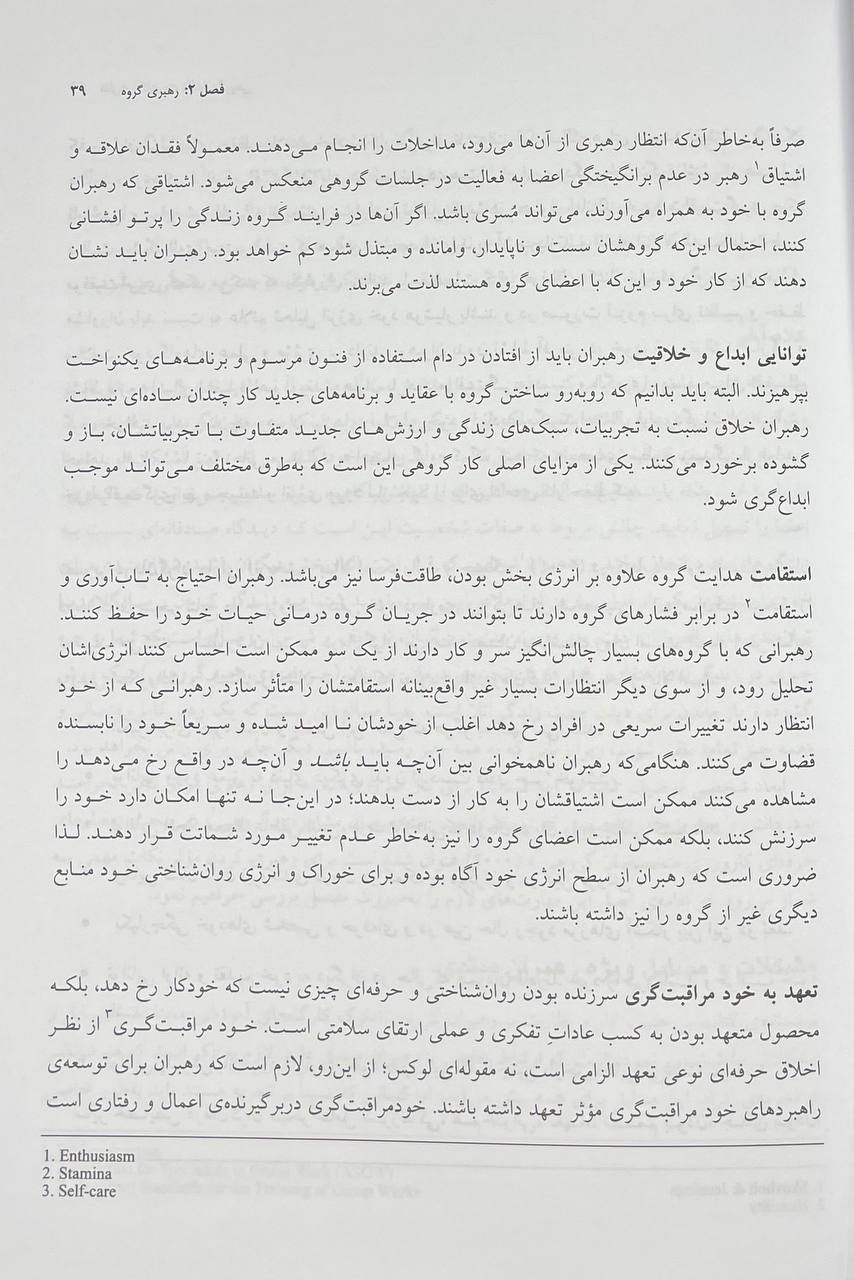 فصل ۲: رهبری گروه ۳۹
صرفاً به‌خاطر آن‌که انتظار رهبری از آن‌ها می‌رود، مداخلات را انجام می‌دهند. معمولاً فقدان علاقه و
اشتیاق۱ رهبر در عدم برانگیختگی اعضا به فعالیت در جلسات گروهی منعکس می‌شود. اشتیاقی که رهبران
گروه با خود به همراه می‌آورند، می‌تواند مُسری باشد. اگر آن‌ها در فرایند گروه زندگی را پرتو افشانی
کنند، احتمال این‌که گروهشان سست و ناپایدار، وامانده و مبتذل شود کم خواهد بود. رهبران باید نشان
دهند که از کار خود و این‌که با اعضای گروه هستند لذت می‌برند.
توانایی ابداع و خلاقیت رهبران باید از افتادن در دام استفاده از فنون مرسوم و برنامه‌های یکنواخت
بپرهیزند. البته باید بدانیم که روبه‌رو ساختن گروه با عقاید و برنامه‌های جدید کار چندان ساده‌ای نیست.
رهبران خلاق نسبت به تجربیات، سبک‌های زندگی و ارزش‌های جدید متفاوت با تجربیاتشان، باز و
گشوده برخورد می‌کنند. یکی از مزایای اصلی کار گروهی این است که به‌طرق مختلف می‌تواند موجب
ابداع‌گری شود.
استقامت هدایت گروه علاوه بر انرژی بخش بودن، طاقت‌فرسا نیز می‌باشد. رهبران احتیاج به تاب‌آوری و
استقامت۲ در برابر فشارهای گروه دارند تا بتوانند در جریان گروه درمانی حیات خود را حفظ کنند.
رهبرانی که با گروه‌های بسیار چالش‌انگیز سر و کار دارند از یک سو ممکن است احساس کنند انرژی‌اشان
تحلیل رود، و از سوی دیگر انتظارات بسیار غیر واقع‌بینانه استقامتشان را متأثر سازد. رهبرانی که از خود
انتظار دارند تغییرات سریعی در افراد رخ دهد اغلب از خودشان نا امید شده و سریعاً خود را نابسنده
قضاوت می‌کنند. هنگامی‌که رهبران ناهمخوانی بین آن‌چه باید باشد و آن‌چه در واقع رخ می‌دهد را
مشاهده می‌کنند ممکن است اشتیاقشان را به کار از دست بدهند؛ در این‌جا نه تنها امکان دارد خود را
سرزنش کنند، بلکه ممکن است اعضای گروه را نیز به‌خاطر عدم تغییر مورد شماتت قرار دهند. لذا
ضروری است که رهبران از سطح انرژی خود آگاه بوده و برای خوراک و انرژی روان‌شناختی خود منابع
دیگری غیر از گروه را نیز داشته باشند.
تعهد به خود مراقبت‌گری سرزنده بودن روان‌شناختی و حرفه‌ای چیزی نیست که خودکار رخ دهد، بلکه
محصول متعهد بودن به کسب عاداتِ تفکری و عملی ارتقای سلامتی است. خود مراقبت‌گری۳ از نظر
اخلاق حرفه‌ای نوعی تعهد الزامی است، نه مقوله‌ای لوکس؛ از این‌رو، لازم است که رهبران برای توسعه‌ی
راهبردهای خود مراقبت‌گری مؤثر تعهد داشته باشند. خودمراقبت‌گری دربرگیرنده‌ی اعمال و رفتاری است
1. Enthusiasm
2. Stamina
3. Self-care